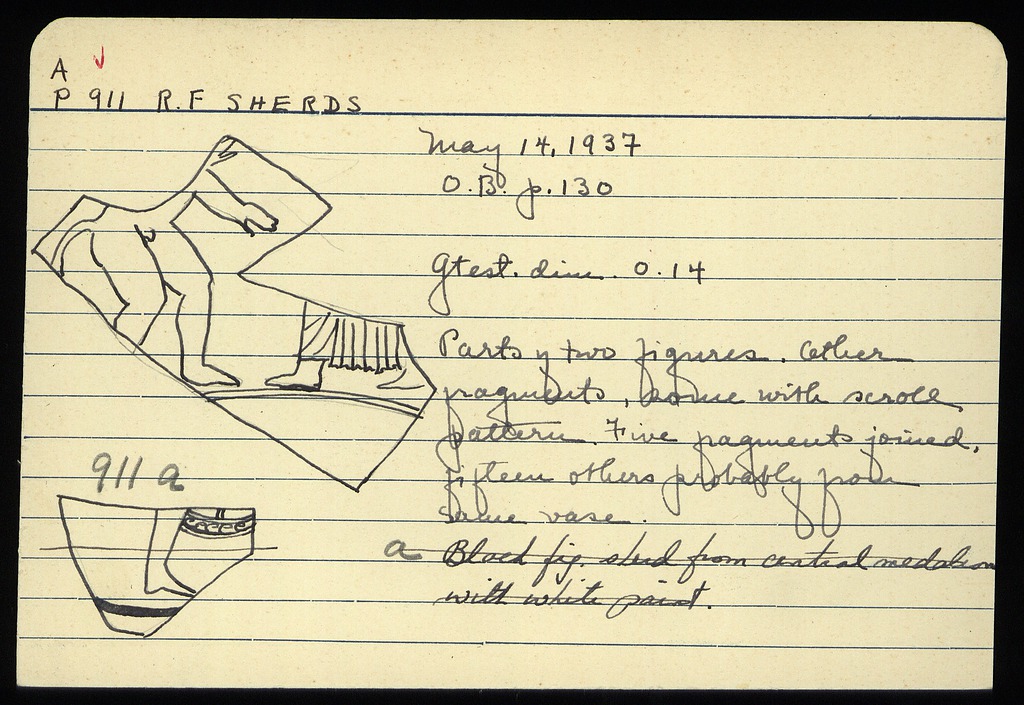 A ✓
P 911 R.F SHERDS
May 14, 1937
O.B. p. 130
Gtest. dim. 0.14
Parts of two figures. Other
fragments, some with scroll
pattern. Five fragments joined,
fifteen others probably from
same vase.
911 a
a Black fig. sherd from central medalion
with white paint.